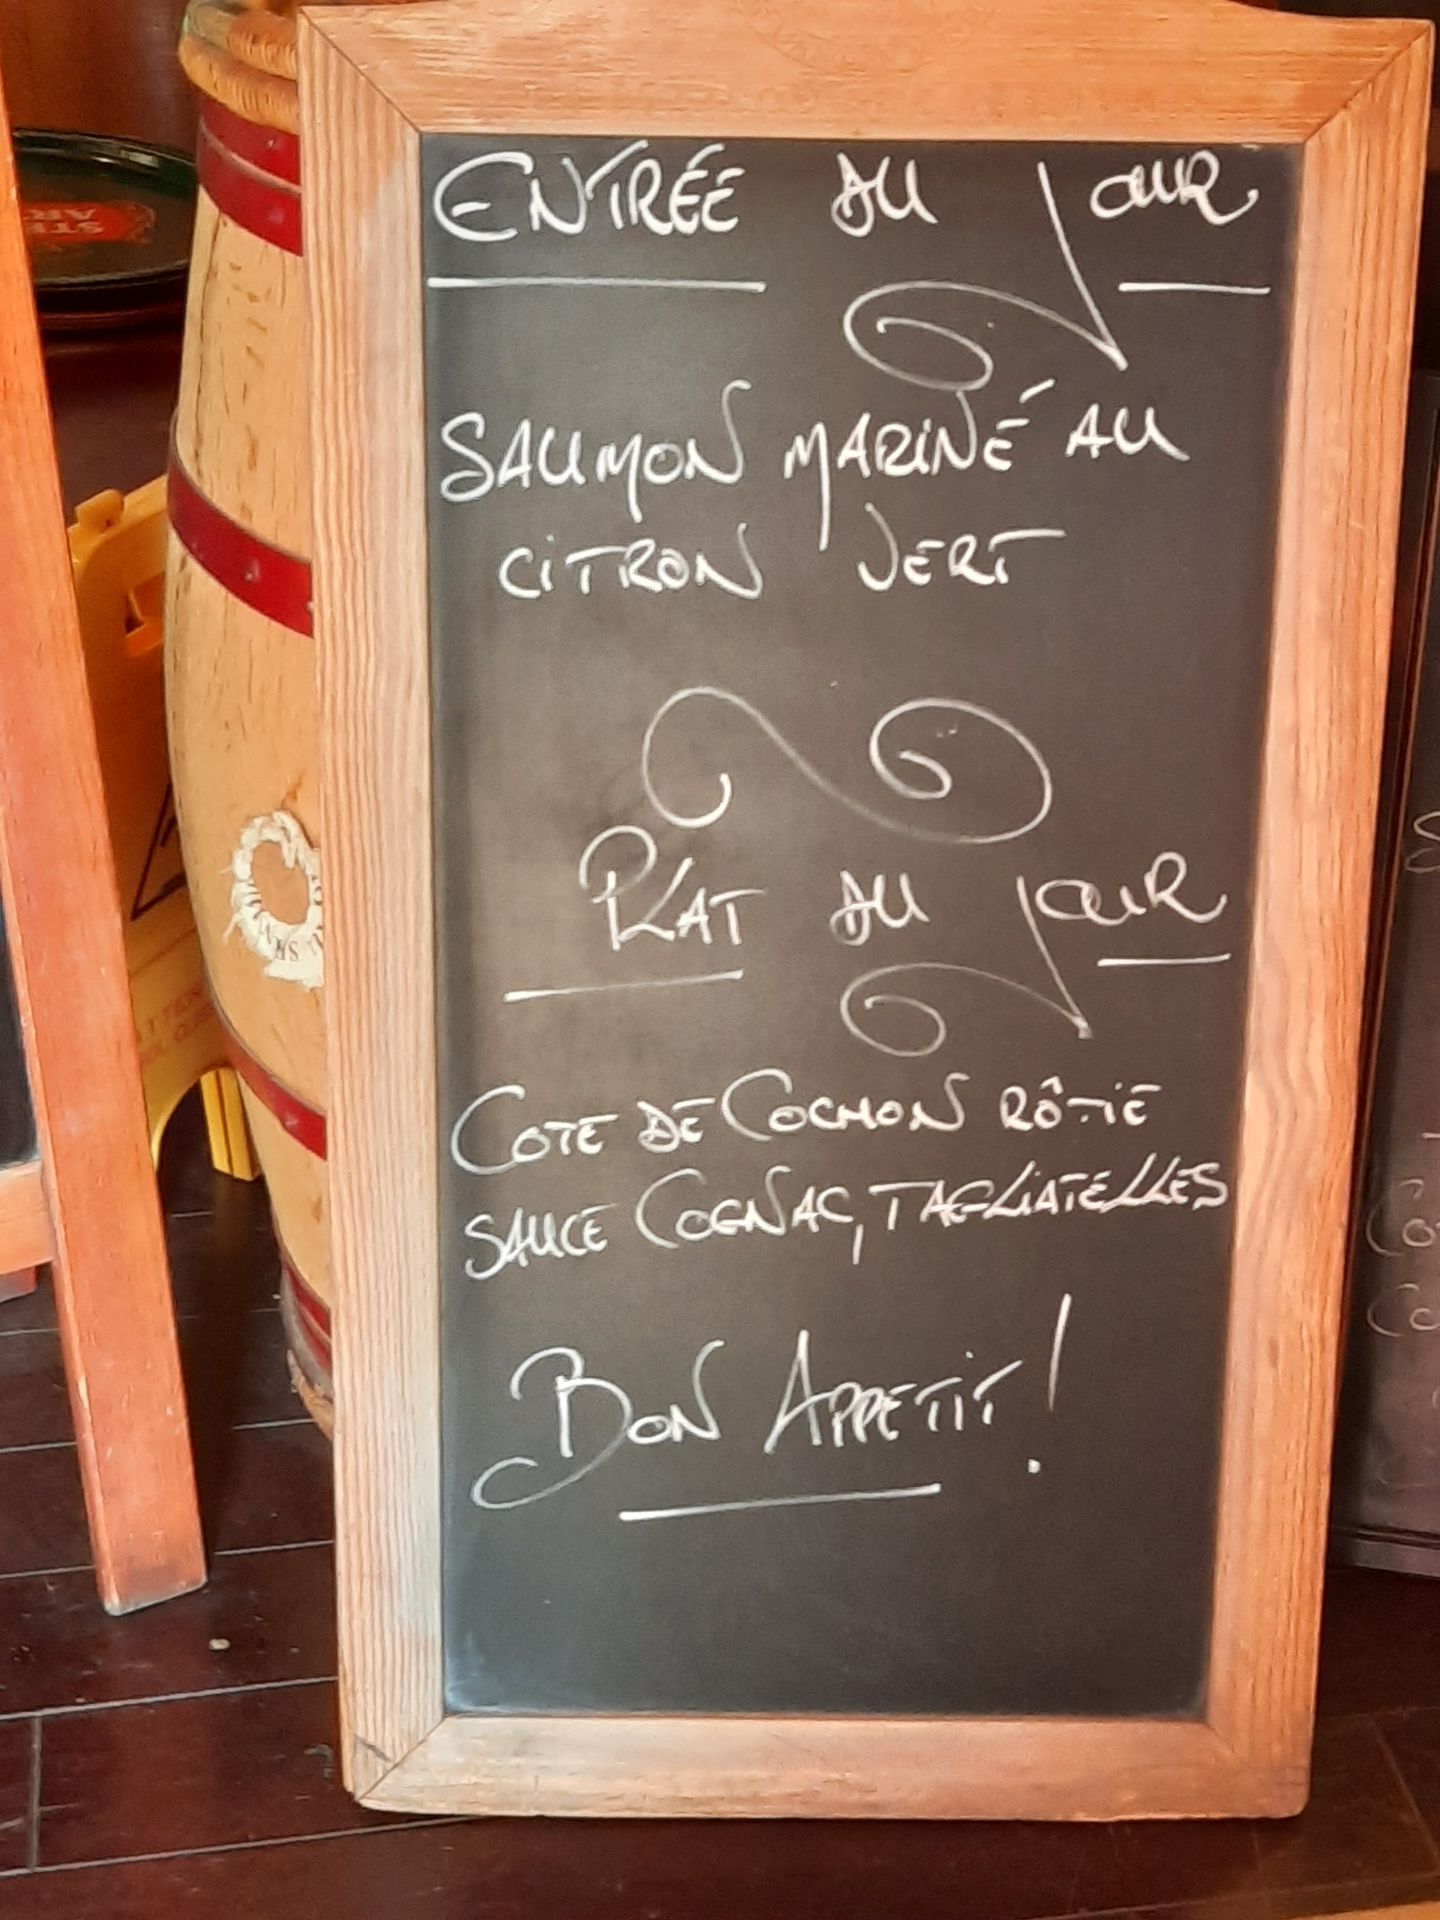 ENTRÉE DU JOUR
SAUMON MARINÉ AU
CITRON VERT
PLAT DU JOUR
COTE DE COCHON RÔTIE
SAUCE COGNAC, TAGLIATELLES
BON APPETIT!